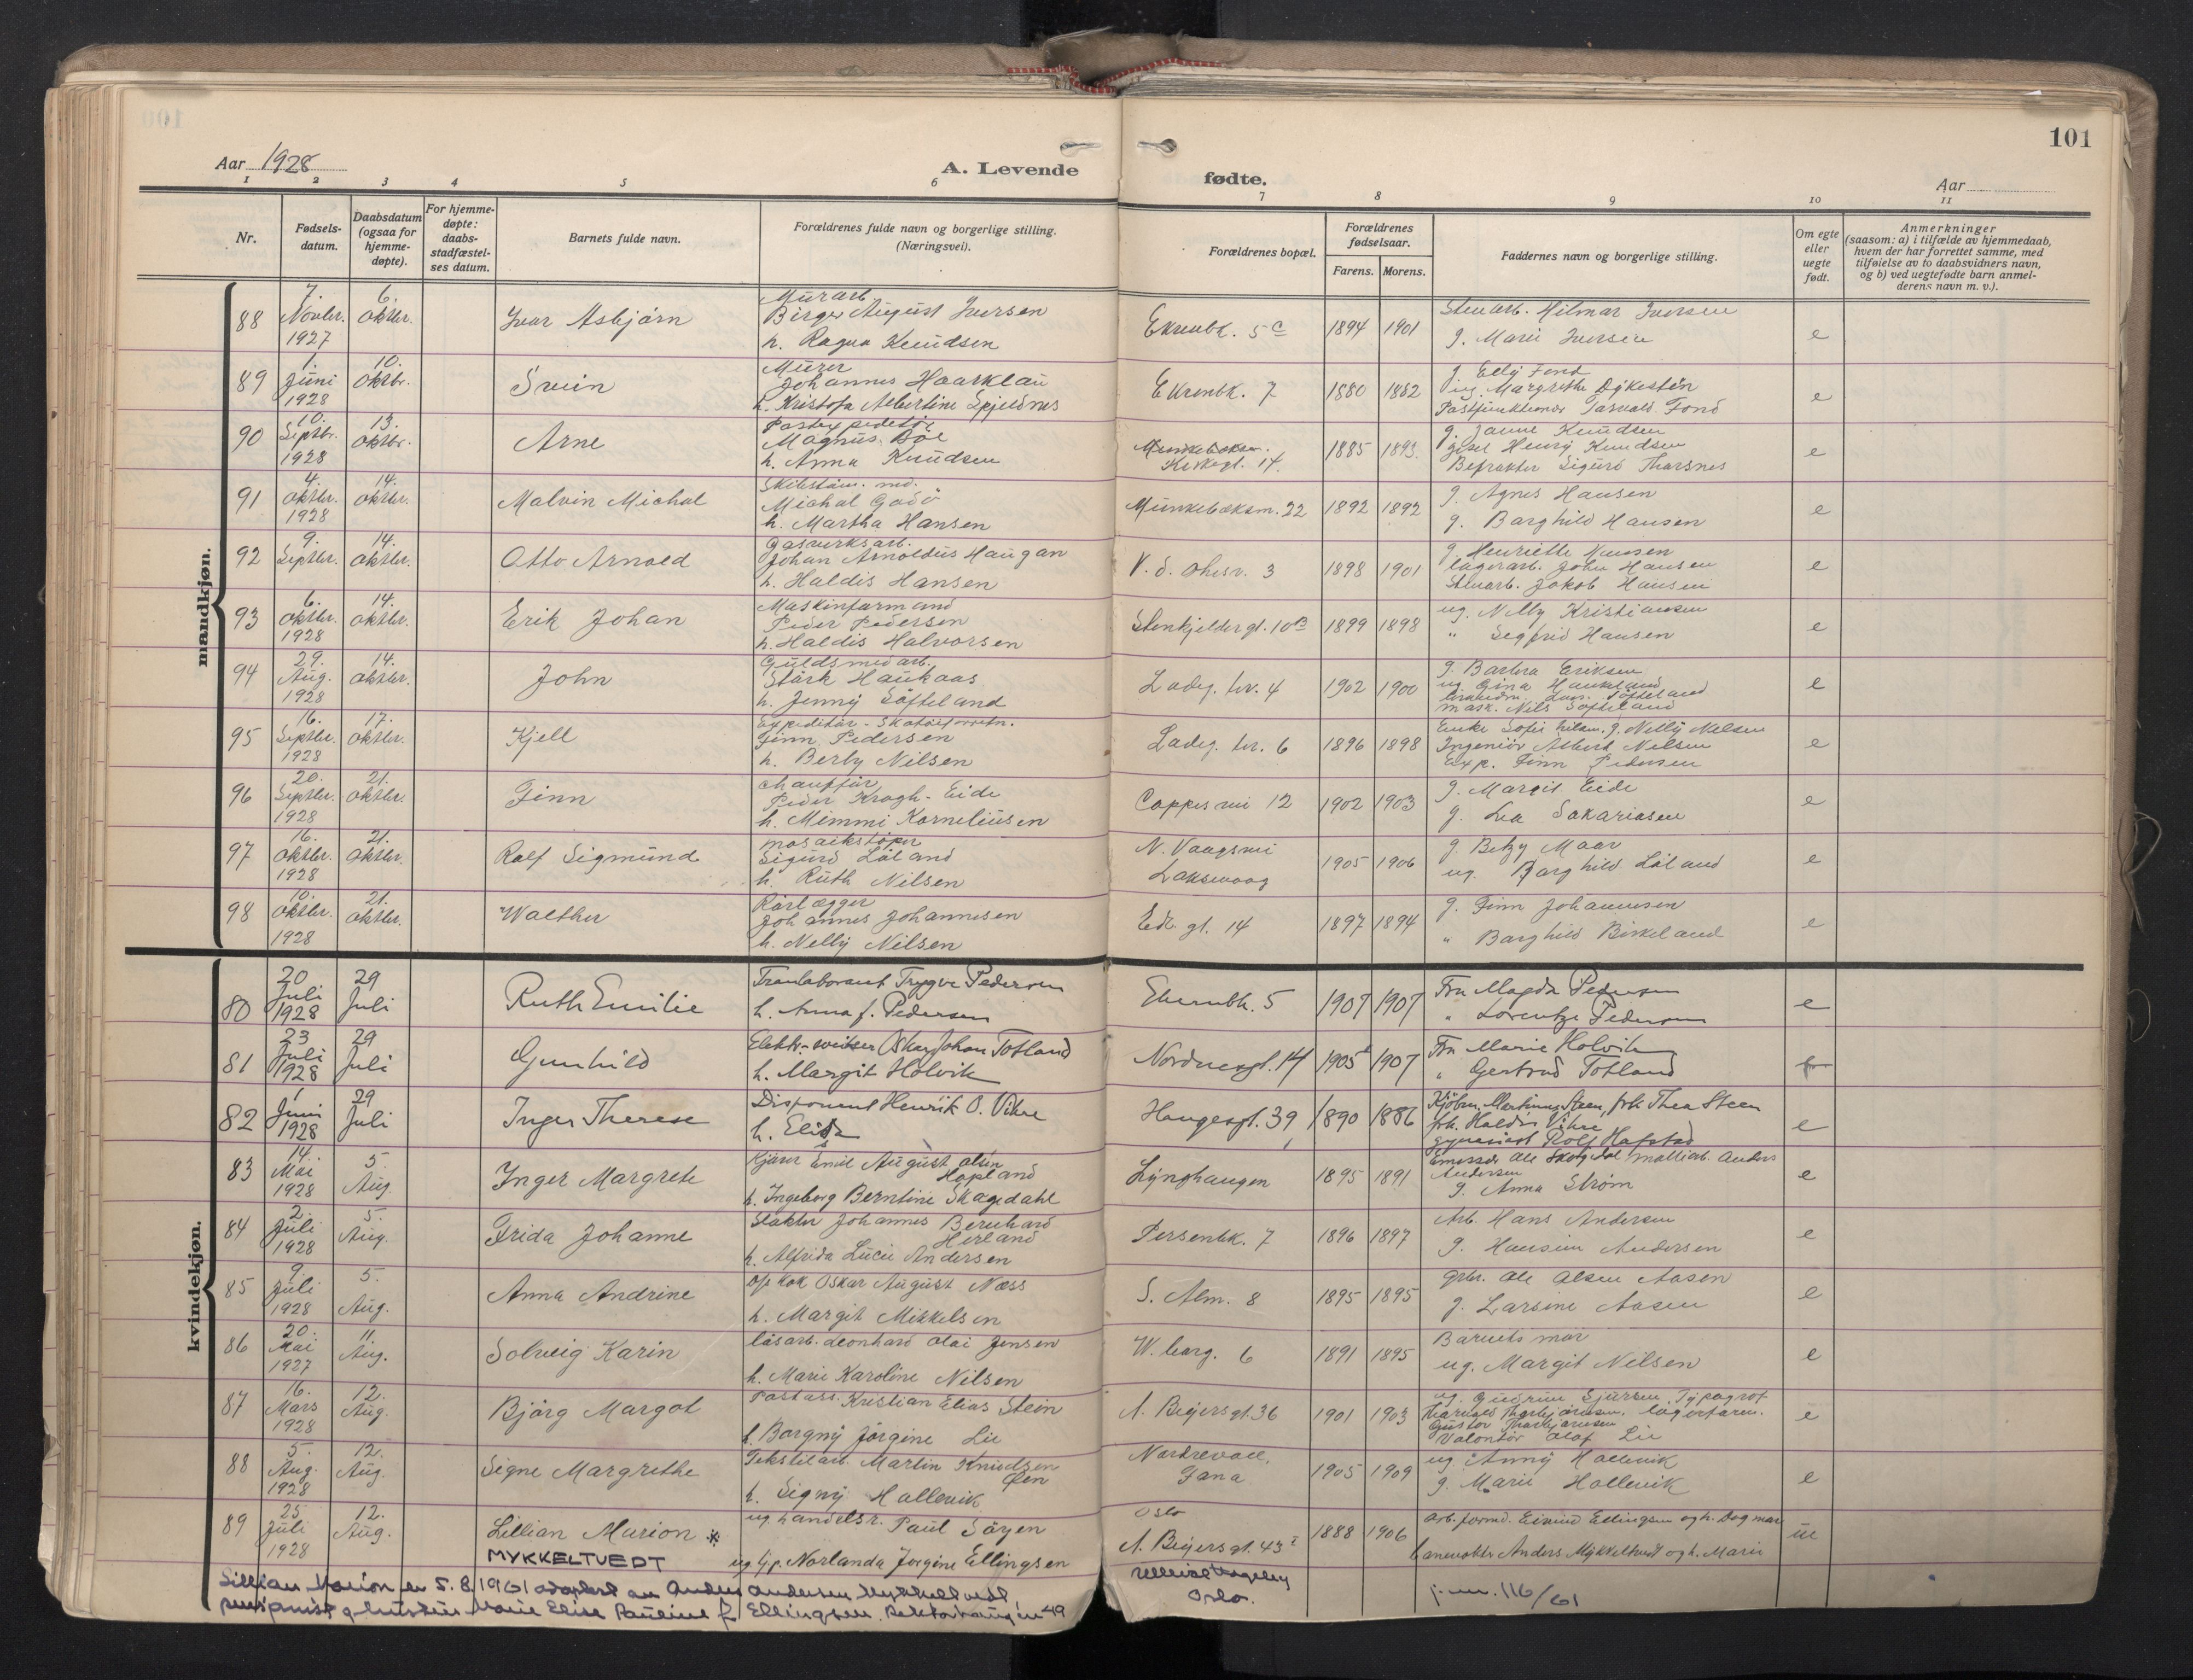 101
Aar 1928
A. Levende
fødte.
Aar
1 2 3 4 5 6 7 8 9 10 11
Nr.
Fødsels-datum.
Daabsdatum (ogsaa for hjemme-døpte).
For hjemme-døpte: daabs-stadfæstel-ses datum.
Barnets fulde navn.
Forældrenes fulde navn og borgerlige stilling. (Næringsvei).
Forældrenes bopæl.
Forældrenes fødselsaar.
Farens. Morens.
Faddernes navn og borgerlige stilling.
Om egte eller uegte født.
Anmerkninger (saasom: a) i tilfælde av hjemmedaab, hvem der har forrettet samme, med tilføielse av to daabsvidners navn, og b) ved uegtefødte barn anmel-derens navn m. v.).
mandkjøn.
88 7. Novbr. 1927 6. Oktbr. Ivar Asbjørn Murarb. Birger August Iversen h. Ragna Knudsen Ekrenbk. 5 c 1894 1901 Stenarb. Hilmar Iversen g. Marie Iversen e
89 1. Juni 1928 10. Oktbr. Svein Murer Johannes Haarklau h. Kristofa Albertine Spjeldnes Ekrenbk. 7 1880 1882 g. Elly Fond ug. Margrethe Dykesten Postfunktionær Fond e
90 10. Septbr. 1928 13. Oktbr. Arne Postexpeditør Magnus Boe h. Anna Knudsen Kirkegt. 14. 1885 1893. g. Janne Knudsen Henry Knudsen Befrakter Sigurd Tharsnes e
91 4. Oktbr. 1928 14. Oktbr. Malvin Michal Michal Godø h. Martha Hansen Munkebæksm. 22 1892 1892 g. Agnes Hansen g. Borghild Hansen e
92 9. Septbr. 14. Oktbr. Otto Arnold Gasverksarb. Johan Arnoldus Haugan h. Haldis Hansen V. d. 3 1898 1901 g. Henriette Hansen lagerarb. John Hansen Stenarb. Jakob Hansen e
93 6. Oktbr. 1928 14. Oktbr. Erik Johan Maskinformand Peder Pedersen h. Haldis Halvorsen Stenkjeldergt. 10 B 1899 1898 ug. Nelly Kristiansen " Segfrid Hansen e
94 29. Aug. 1928 14. Oktbr. John Guldsmedarb. Stärk Haukaas h. Jenny Søfteland Ladeg. tr. 4 1902 1900 g. Barbra Eriksen ug. Gina Haukeland Lars Søfteland mask. Nils Søfteland e
95 16. Septbr. 1928 17. Oktbr. Kjell Expeditør - Skotøiforretn. Finn Pedersen h. Berby Nilsen Ladeg. tr. 6 1896 1898 Enke Sofie Nilsen. g. Nelly Nilsen Ingeniør Albert Nilsen Exp. Finn Pedersen e
96 20. Septbr. 1928 21. Oktbr. Finn Chauffør Peder Krogh-Eide h. Mimmi Korneliusen Cappes vei 12 1902 1903 g. Margit Eide g. Lea Sakariasen e
97 16. Oktbr. 1928 21. Oktbr. Rolf Sigmund mosaikstøper Sigurd Løland h. Ruth Nilsen N. Vaagsvei Laksevaag 1905 1906 g. Betzy Maar ug. Borghild Løland e
98 10. Oktbr. 1928 21. Oktbr. Walther Rørlægger Johannes Johannesen h. Nelly Nilsen gt. 14 1897 1894 g. Finn Johannesen " Borghild Birkeland e
kvindekjøn.
80 20 Juli 1928 29 Juli Ruth Emilie Tranlaborant Trygve Pedersen h. Anna f. Pedersen 5 1907 1907 Fru Magda Pedersen " Lorentze Pedersen e
81 23 Juli 1928 29 Juli Gunhild Elektr.-sveiser Oskar Johan Totland h. Margit Holvik Nordnesgt. 14 1905 1907 Fru Marie Holvik " Gertrud Totland
82 1 Juni 1928 29 Juli Inger Therese Disponent Henrik O. Vikre h. Elida Haugesgt. 39 1890 1886 Kjøbm. Martinus Steen, frk. Thea Steen frk. Haldis Vikre gymnasiast Rolf Hafstad e
83 14. Mai 1928 5. Aug. Inger Margrete Kjører Emil August Olsen Hopland h. Ingeborg Berntine Skagedahl Lynghaugen 1895 1891 Ole Skagedal Anders Andersen g. Anna Strøm e
84 2. Juli 1928 5. Aug. Frida Johanne Slakter Johannes Bernhard Herland h. Alfrida Lucie Andersen Persenbk. 7 1896 1897 Arb. Hans Andersen g. Hansine Andersen e
85 9. Juli 1928 5. Aug. Anna Andrine kok Oskar August Næss h. Margit Mikkelsen S. Alm. 8 1895 1895 Gbr. Ole Olsen Aasen g. Larsine Aasen e
86 20. Mai 1927 11. Aug. Solveig Karin løsarb. Leonhard Olai Jensen h. Marie Karoline Nilsen W. borg. 6 1891 1895 Barnets mor ug. Margit Nilsen e
87 16. Mars 1928 12. Aug. Bjørg Margot Postass. Kristian Elias Stein h. Borgny Jørgine Lie A. Beyers gt. 36 1901 1903 ug. Gudrun Sjursen, Typograf Tharvald Tharbjørnsen, lagerform. Gustav Tharbjørnsen Volontør Olaf Lie e
88 5. Aug. 1928 12. Aug. Signe Margrethe Tekstilarb. Martin Knudsen Øen h. Signy Hallevik Nordrevoll, Fana 1905 1909 ug. Anny Hallevik g. Marie Hallevik e
89 25 Juli 1928 12. Aug. Lillian Marion * MYKKELTVEDT ug. handelsr. Paul Søyen ug. tjp. Norlanda Jørgine Ellingsen Oslo A. Beyers gt. 43 I 1888 1906 Arb.formd. Eivind Ellingsen og h. Dagmar Anders Mykkeltvedt og h. Marie ue
Lillian Marion er 5.8.1961 adoptert av Anders Andersen Mykkeltvedt, Ullevål Hageby
pensjonist og hustru Marie Elise Pauline f. Ellingsen. Rektorhaugen 49 Oslo. j.nr. 116/61